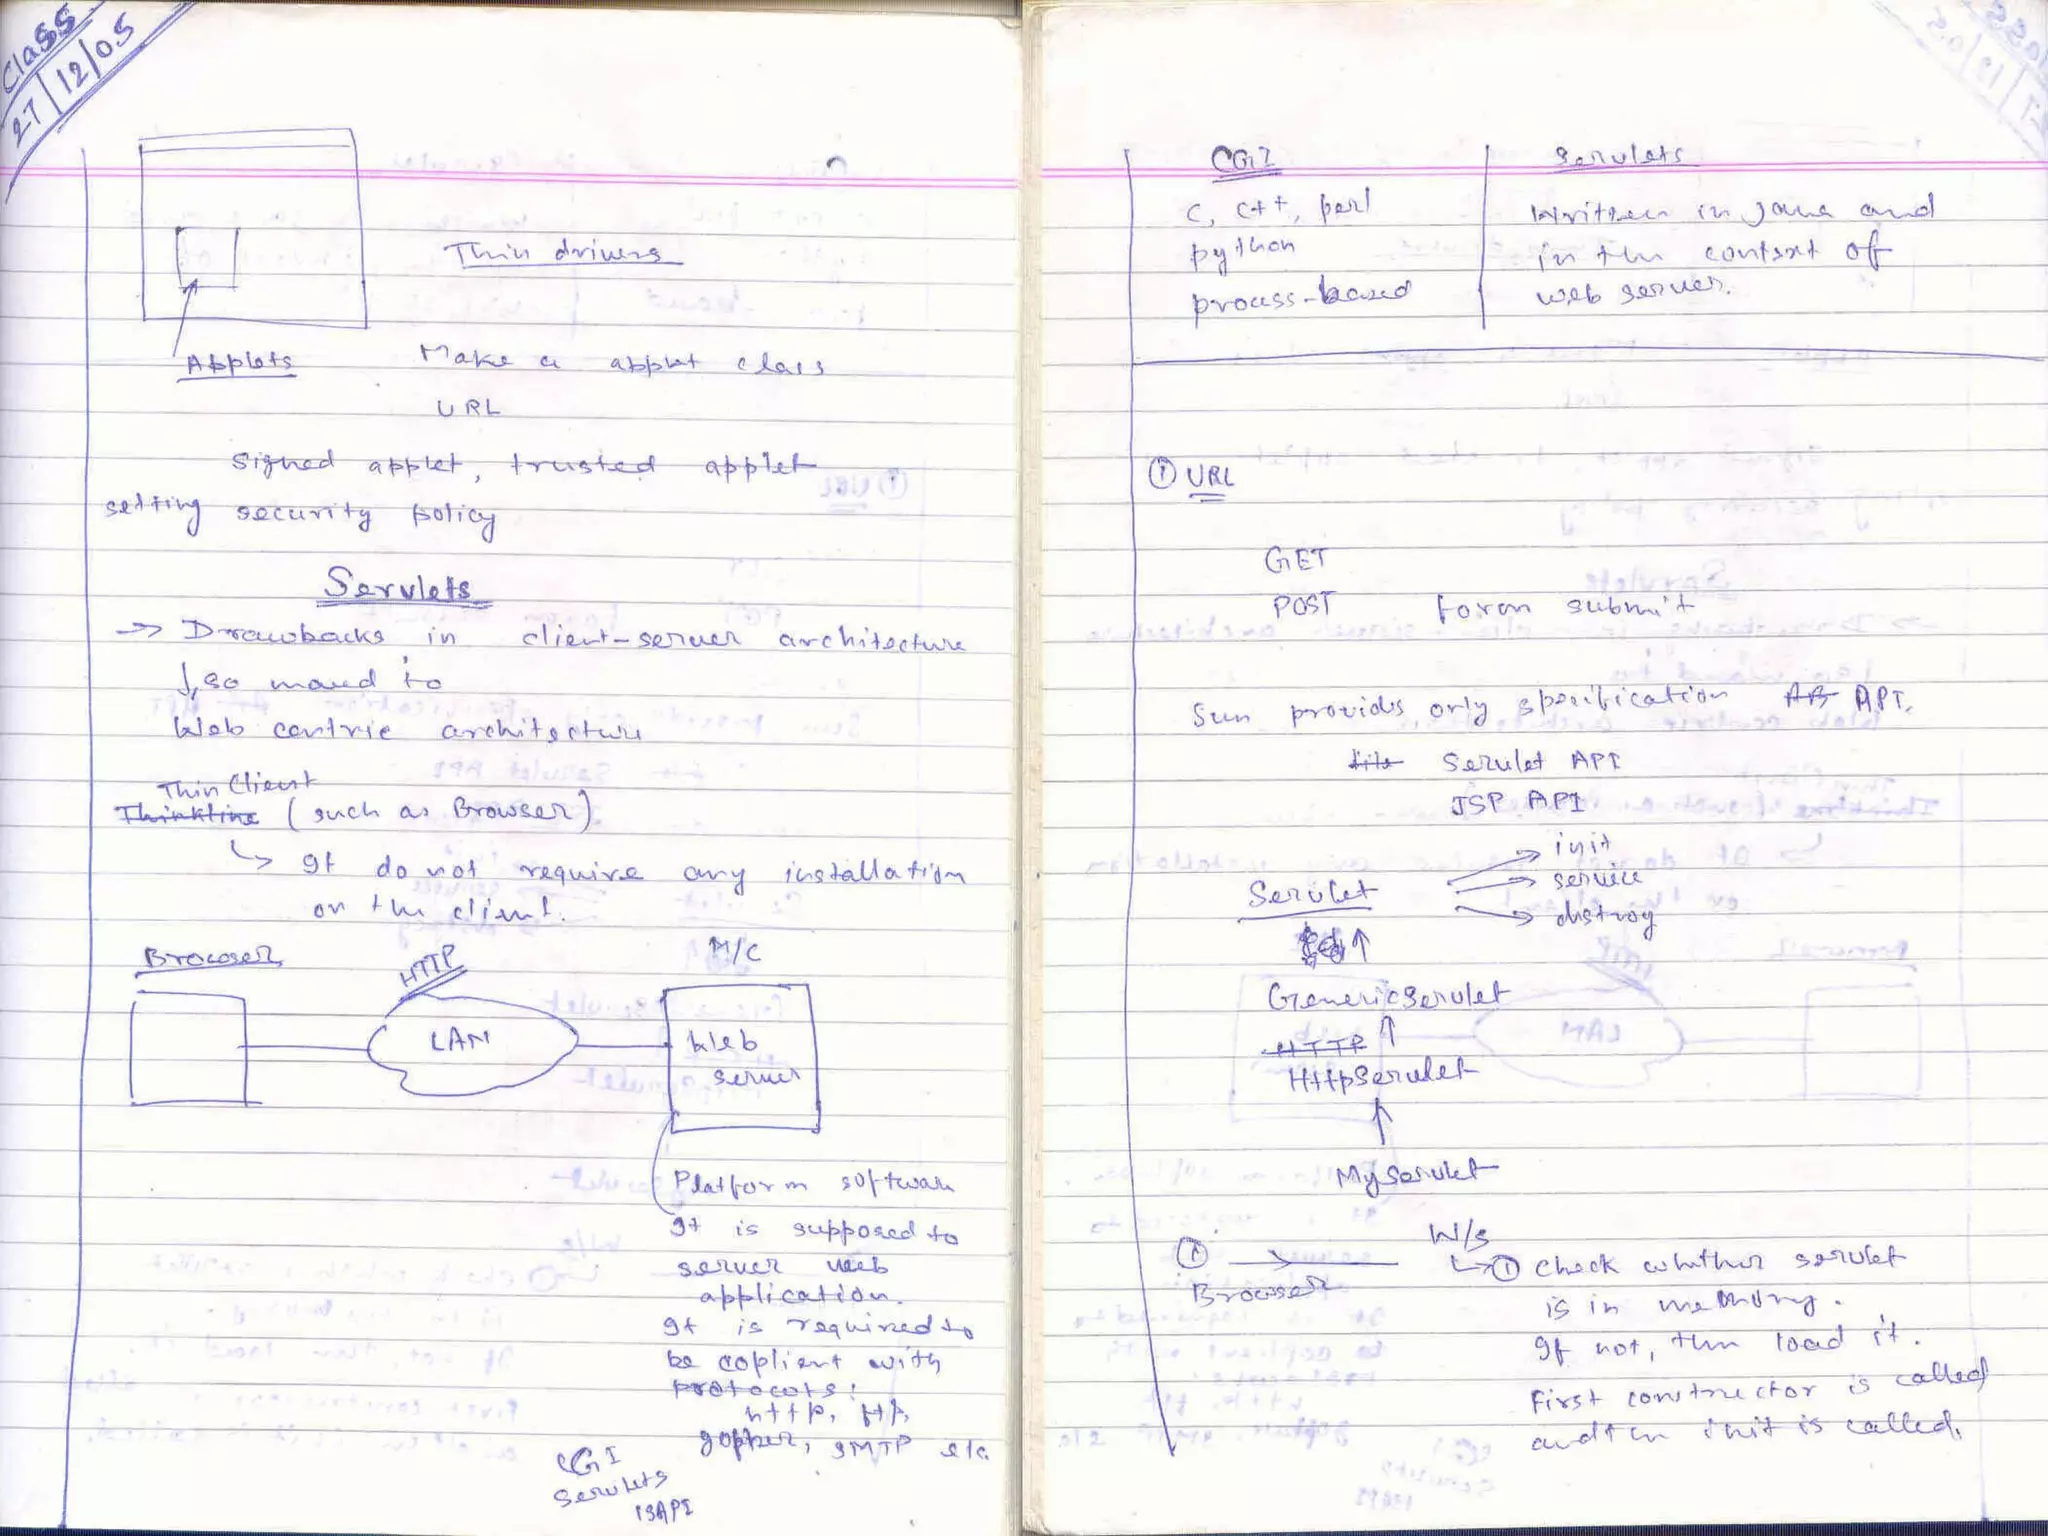 Class
27/12/05
Thin drivers
Applets
Make a applet class
URL
Signed applet, trusted applet
setting security policy
Servlets
→ Drawbacks in client-server architecture
↓, so moved to
Web centric architecture
Thin Client
Thinkline (such as Browser)
↳ It do not require any installation
on the client.
Browser
HTTP
M/C
LAN
Web
server
Platform software
It is supposed to
server web
application.
It is required to
be coplient with
protocols:
http, ftp,
gopher, SMTP etc.
CGI
Servlets
ISAPI
CGI
C, C++, perl
python
process-based
Servlets
Written in Java and
in the context of
web server.
① URL
GET
POST form submit
Sun provides only specification API.
Servlet API
JSP API
Servlet
→ init
→ service
→ distroy
↑
GenericServlet
HTTP ↑
HttpServlet
↑
MyServlet
① →
Browser
W/S
↳① Check whether servlet
is in memory.
If not, then load it.
First constructor is called
and then init is called.